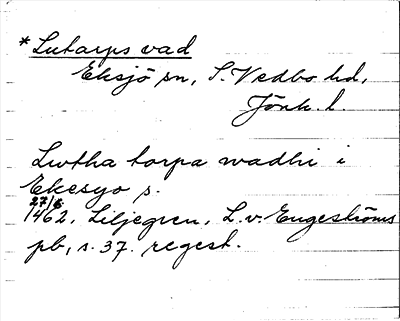 *Lutarps vad
Eksjö sn, S. Vedbo hd,
Jönk. l.
Lwtha torpa wadhi i
Ekesyo s.
27/6
1462, Liljegren, L. v. Engeströms
pb, s. 37. regest.